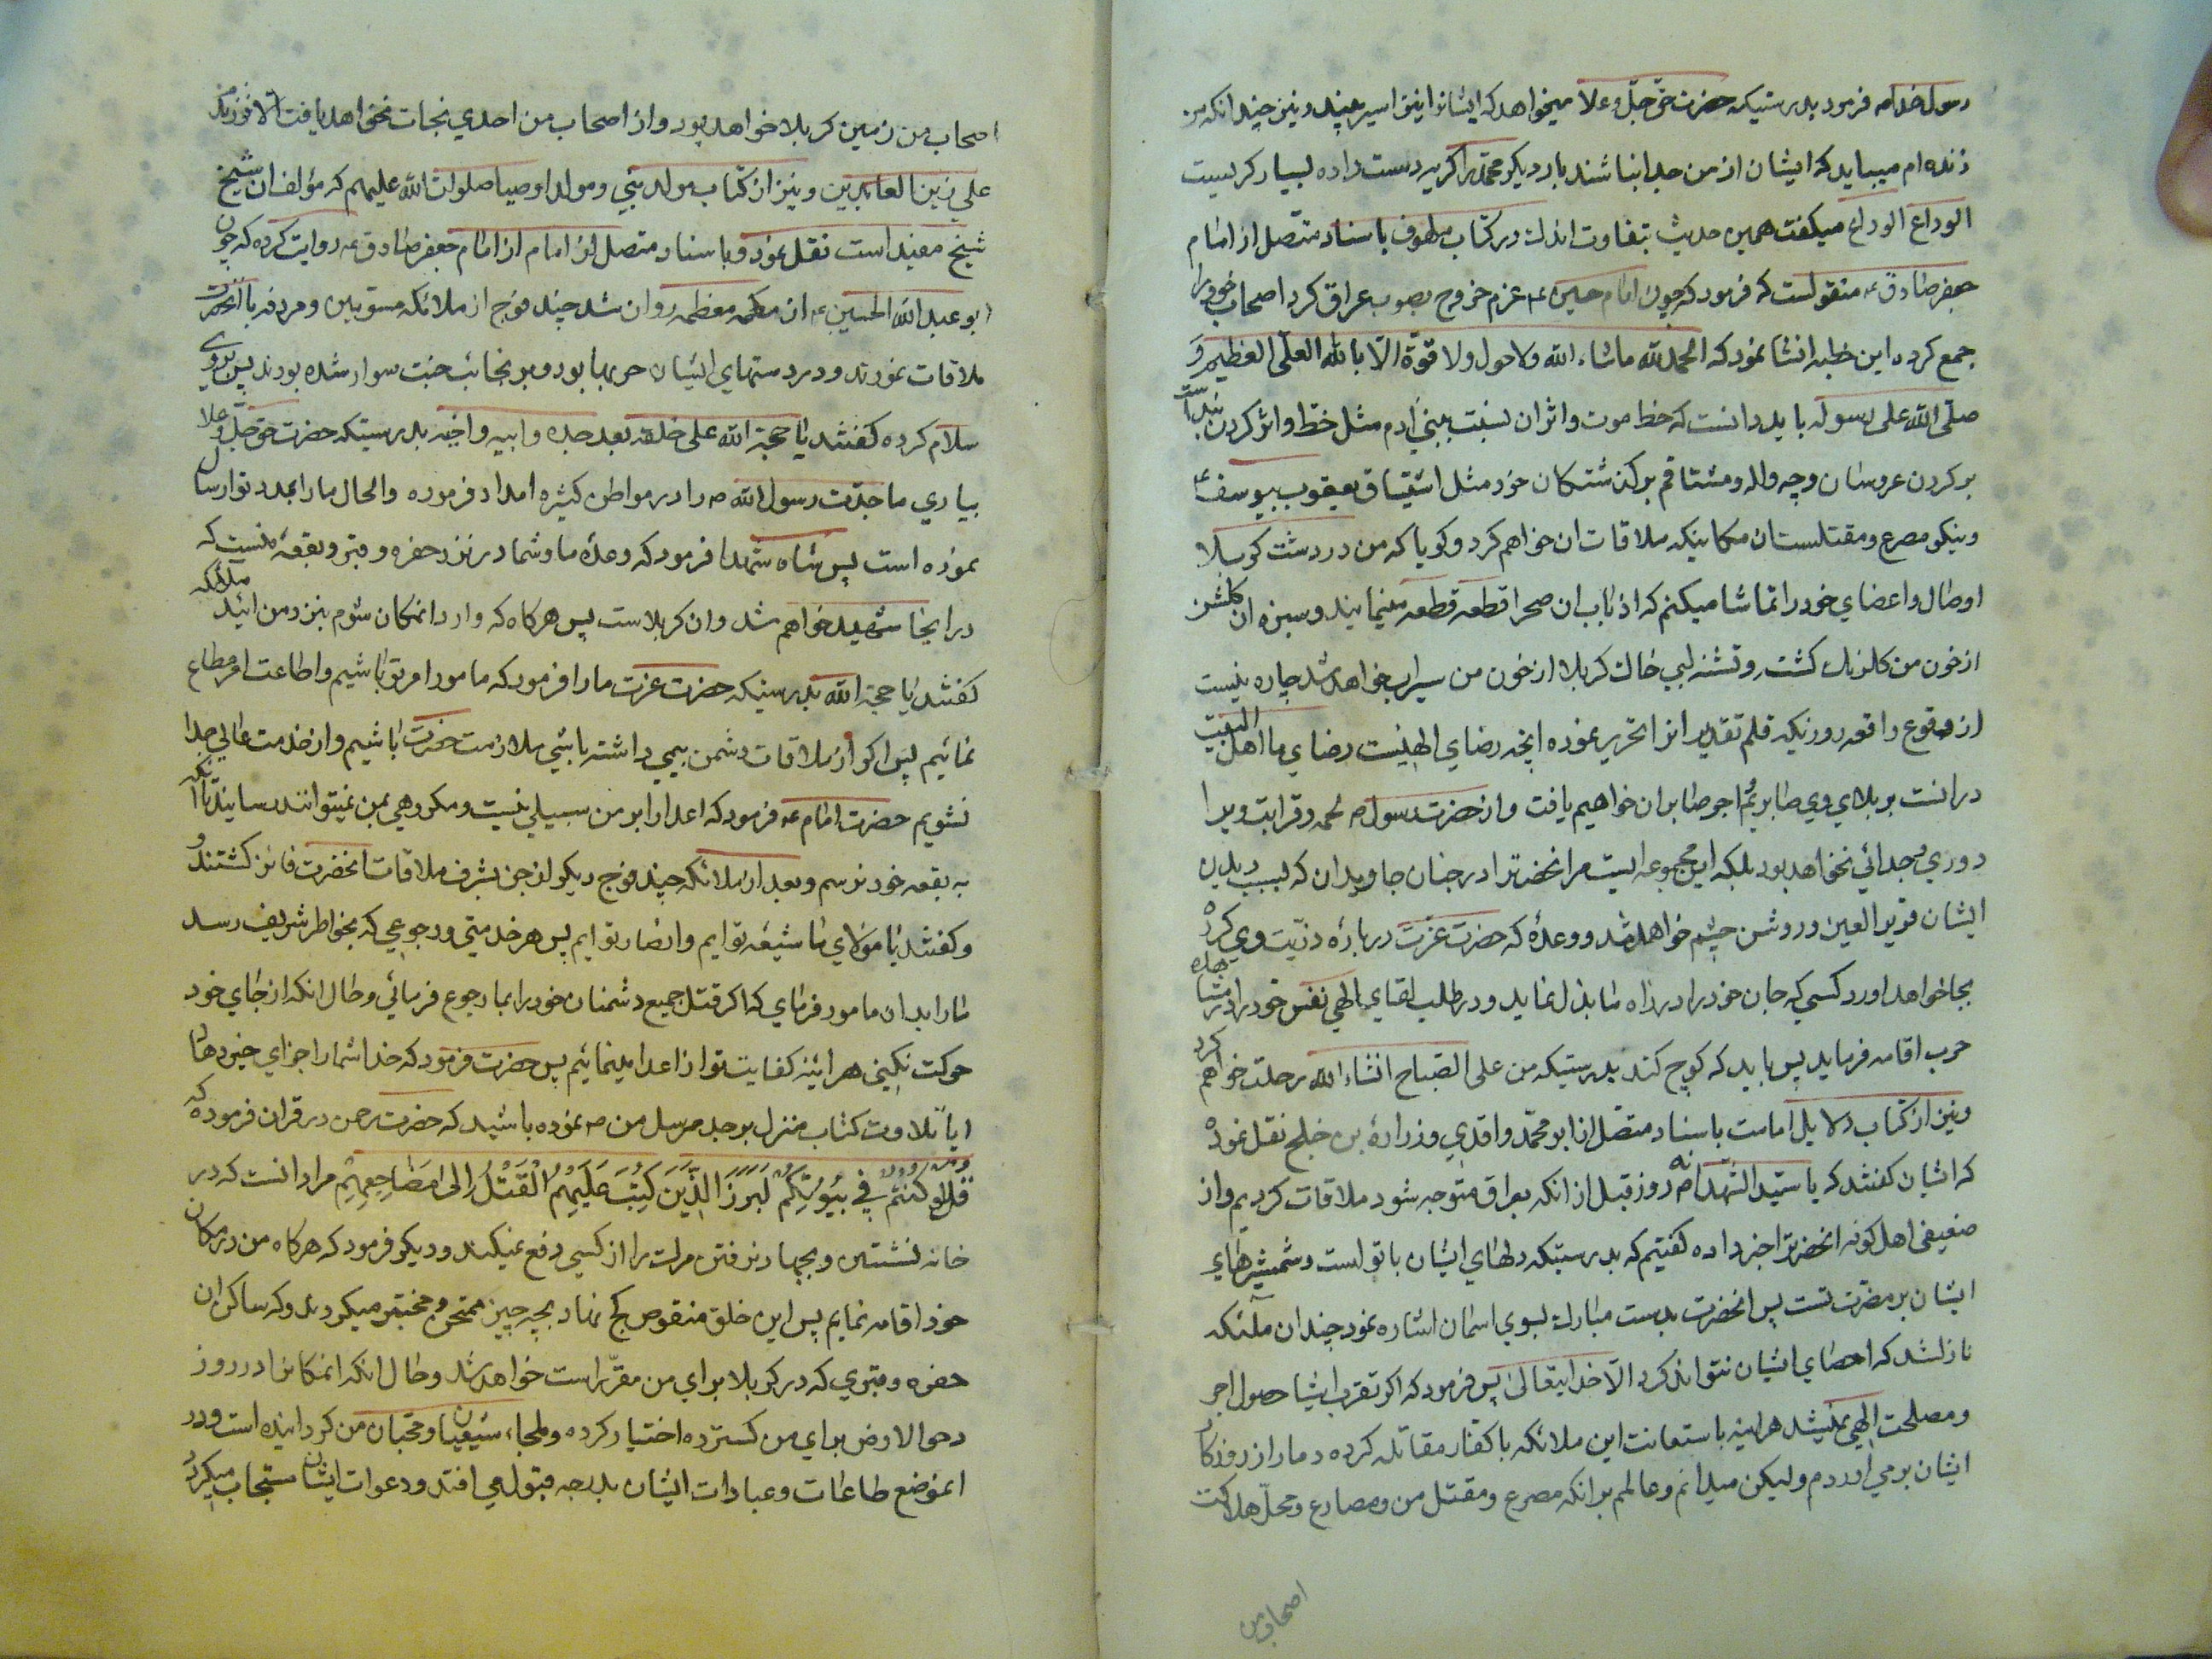 رسول خدا ص فرمود بدرستیکه حضرت حق جل و علا میخواهد که ایشانرا نیز اسیر بیند و نیز چندانکه من
زنده ام میباید که ایشان از من جدا نباشند بار دیگر محمد را گریه دست داده بسیار گریست
الوداع الوداع میگفت همین حدیث بتفاوت اندک در کتاب ملهوف باسناد متصل از امام
جعفر صادق ع منقولست که فرمود که چون امام حسین ع عزم خروج بصوب عراق کرد اصحاب خود را
جمع کرده این خطبه انشا نمود که الحمد لله ماشاء الله ولا حول ولا قوة الا بالله العلی العظیم و
صلی الله علی رسوله باید دانست که خط موت و اثر آن نسبت ببنی آدم مثل خط و اثر گردن بند است
بر گردن عروسان وچه واله و مشتاقم بر گذشتگان خود مثل اشتیاق یعقوب بیوسف ع
و نیکو مصرع و مقتلیست آن مکانیکه ملاقات آن خواهم کرد و گویا که من در دشت کربلا
اوصال و اعضای خود را تماشا میکنم که ذئاب آن صحرا قطعه قطعه مینمایند و سبزه آن گلشن
از خون من گلرنک گشته و تشنه لبی خاک کربلا از خون من سیراب خواهد شد چاره نیست
از وقوع واقعه روزیکه قلم تقدیر آنرا تحریر نموده آنچه رضای الهیست رضای ما اهل البیت
در آنست بر بلای وی صابریم و اجر صابران خواهیم یافت و از حضرت رسول ص لحمه و قرابت ویرا
دوری و جدائی نخواهد بود بلکه این مجموعه ایست مر آنحضرترا در جنان جاویدان که بسبب دیدن
ایشان قریر العین و روشن چشم خواهد شد و وعدهٔ که حضرت عزت دربارهٔ ذریت وی کرده
بجا خواهد آورد کسی که جان خود را در راه ما بذل نماید و در طلب لقای الهی نفس خود را در مشاهده
حرب اقامه فرماید پس باید که کوچ کند بدرستیکه من علی الصباح انشاء الله رحلت خواهم کرد
و نیز از کتاب دلایل امامت باسناد متصل از ابو محمد واقدی و زرارهٔ بن خلج نقل نموده
که ایشان گفتند که با سید الشهدا سه روز قبل از آنکه بعراق متوجه شود ملاقات کردیم و از
ضعیفی اهل کوفه آنحضرترا خبر داده گفتیم که بدرستیکه دلهای ایشان با تو است و شمشیرهای
ایشان بر مضرت تست پس آنحضرت بدست مبارک بسوی آسمان اشاره نمود چندان ملئکه
نازلشد که احصای ایشان نتواند کرد الا خدایتعالی پس فرمود که اگر تقرب اشیا حصول اجر
و مصلحت الهی نمیشد هرآینه باستعانت این ملائکه با کفار مقاتله کرده دمار از روزگار
ایشان برمی آوردم ولیکن میدانم و عالمم بر آنکه مصرع و مقتل من و مصارع و محل هلاکت
اصحاب من
اصحاب من زمین کربلا خواهد بود و از اصحاب من احدی نجات نخواهد یافت الا فرزندم
علی زین العابدین و نیز از کتاب مولد نبی و مولد اوصیا صلوات الله علیهم که مؤلف آن شیخ
شیخ مفید است نقل نموده و باسناد متصل از امام از امام جعفر صادق ع روایت کرده که چون
ابو عبد الله الحسین ع از مکه معظمه روان شد چند فوج از ملائکه مسومین و مردفه با آنحضرت
ملاقات نمودند و در دستهای ایشان حربها بود و بر نجائب جنت سوار شده بودند پس بر وی
سلام کرده گفتند یا حجة الله علی خلقه بعد جده و ابیه و اخیه بدرستیکه حضرت حق جل و علا
بیاری ما جدت رسول الله ص را در مواطن کثیره امداد فرموده والحال ما را بمدد تو ارسال
نموده است پس شاه شهدا فرمود که وعدهٔ ما و شما در نزد حفره و قبر و بقعهٔ منست که
در اینجا شهید خواهم شد و آن کربلاست پس هرگاه که وارد آنمکان شوم بنزد من آئید ملائکه
گفتند یا حجة الله بدرستیکه حضرت عزت ما را فرمود که مامور امر تو باشیم و اطاعت امر مطاع
نمائیم پس اگر از ملاقات دشمن بیمی داشته باشی ملازمت حضرت باشیم و از خدمت عالی جدا
نشویم حضرت امام ع فرمود که اعدا را بر من سبیلی نیست و مکروهی بمن نمیتوانند رسانید تا آنکه
به بقعه خود نرسم و بعد از ملائکه چند فوج دیگر از جن بشرف ملاقات آنحضرت فائز گشتند و
و گفتند یا مولای ما شیعه تو ایم و انصار تو ایم پس هر خدمتی و رجوعی که بخاطر شریف رسد
ما را بدان مامور فرمای که اگر قتل جمیع دشمنان خود را بما رجوع فرمائی و حال آنکه از جای خود
حرکت نکنی هرآینه کفایت تو از اعدا مینمائیم پس حضرت فرمود که خدا شما را جزای خیر دهاد
ایا تلاوت کتاب منزل بر جد مرسل من ص نموده باشید که حضرت رحمن در قرآن فرموده که
قل لو كنتم في بيوتكم لبرز الذين كتب عليهم القتل إلى مضاجعهم مراد آنست که در
خانه نشستن و بجهاد نرفتن مرک را از کسی دفع نمیکند و دیگر فرمود که هرگاه من در مکان
خود اقامه نمایم پس این خلق منقوص کج نهاد بچه چیز ممتحن و مختبر میگردند و که ساکن آن
حفره و قبری که در کربلا برای من مقرر است خواهد شد و حال آنکه آنمکانرا در روز
دحو الارض برای من گسترده اختیار کرده و ملجاء شیعیان و محبان من گردانیده است و در
آنموضع طاعات و عبادات ایشان بدرجه قبول می افتد و دعوات ایشان مستجاب میگردد